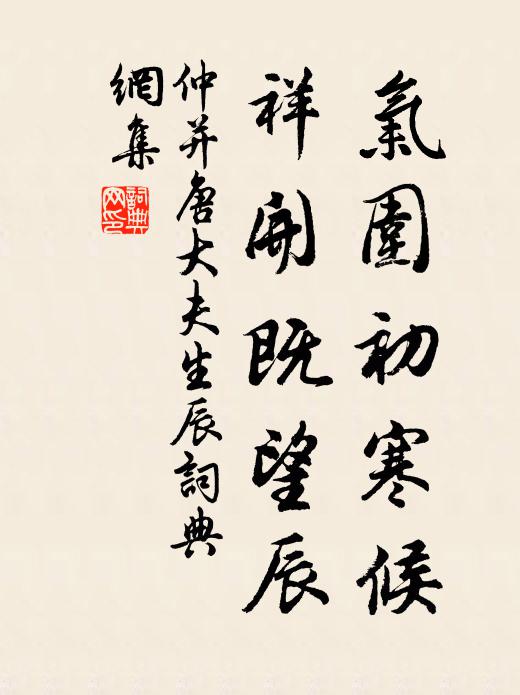 氣圍初寒候
祥開既望辰
仲并唐大夫生辰詞典
網集
詞典
网印